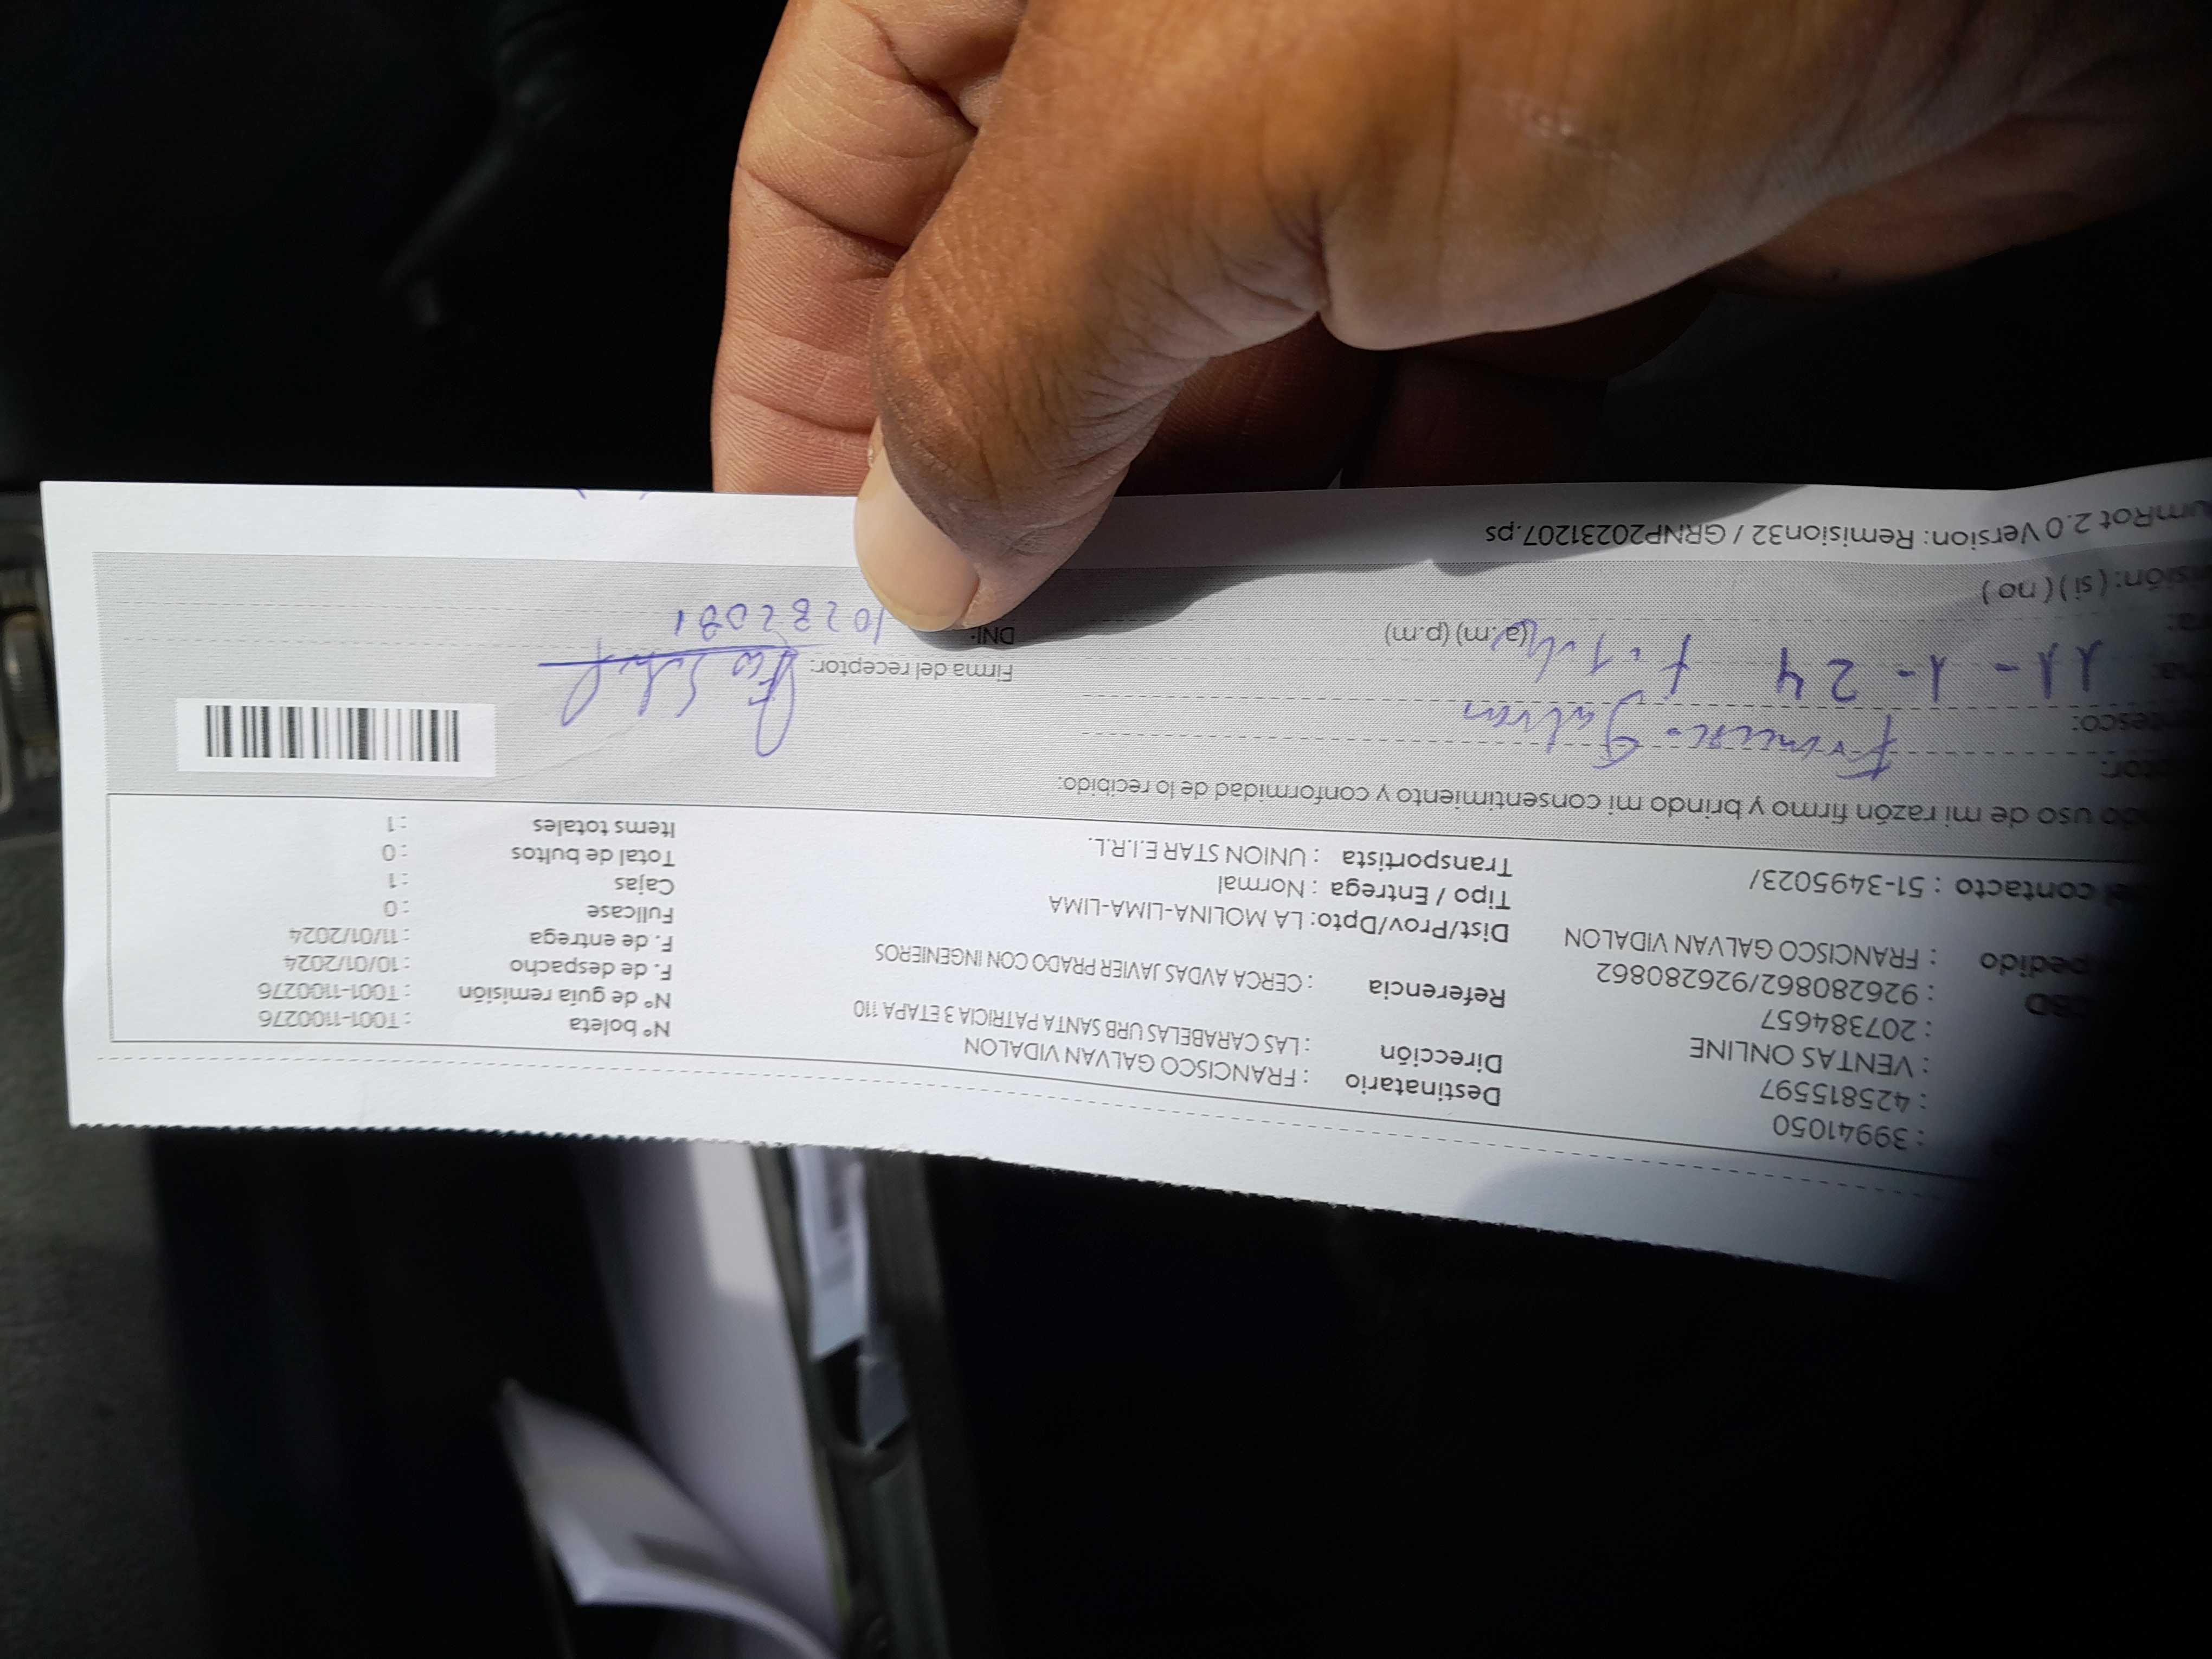 : 39941050
: 425815597
: VENTAS ONLINE
: 207384657
: 926280862/926280862
pedido : FRANCISCO GALVAN VIDALON
contacto : 51-3495023/
Destinatario : FRANCISCO GALVAN VIDALON
Dirección : LAS CARABELAS URB SANTA PATRICIA 3 ETAPA 110
Referencia : CERCA AVDAS JAVIER PRADO CON INGENIEROS
Dist/Prov/Dpto: LA MOLINA-LIMA-LIMA
Tipo / Entrega : Normal
Transportista : UNION STAR E.I.R.L.
Nº boleta : T001-1100276
Nº de guía remisión : T001-1100276
F. de despacho : 10/01/2024
F. de entrega : 11/01/2024
Fullcase : 0
Cajas : 1
Total de bultos : 0
Items totales : 1
uso de mi razón firmo y brindo mi consentimiento y conformidad de lo recibido:
Francisco Galvan
11-1-24
(a.m) (p.m)
(si) (no)
Firma del receptor:
DNI:
10282081
2.0 Version: Remision32 / GRNP20231207.ps